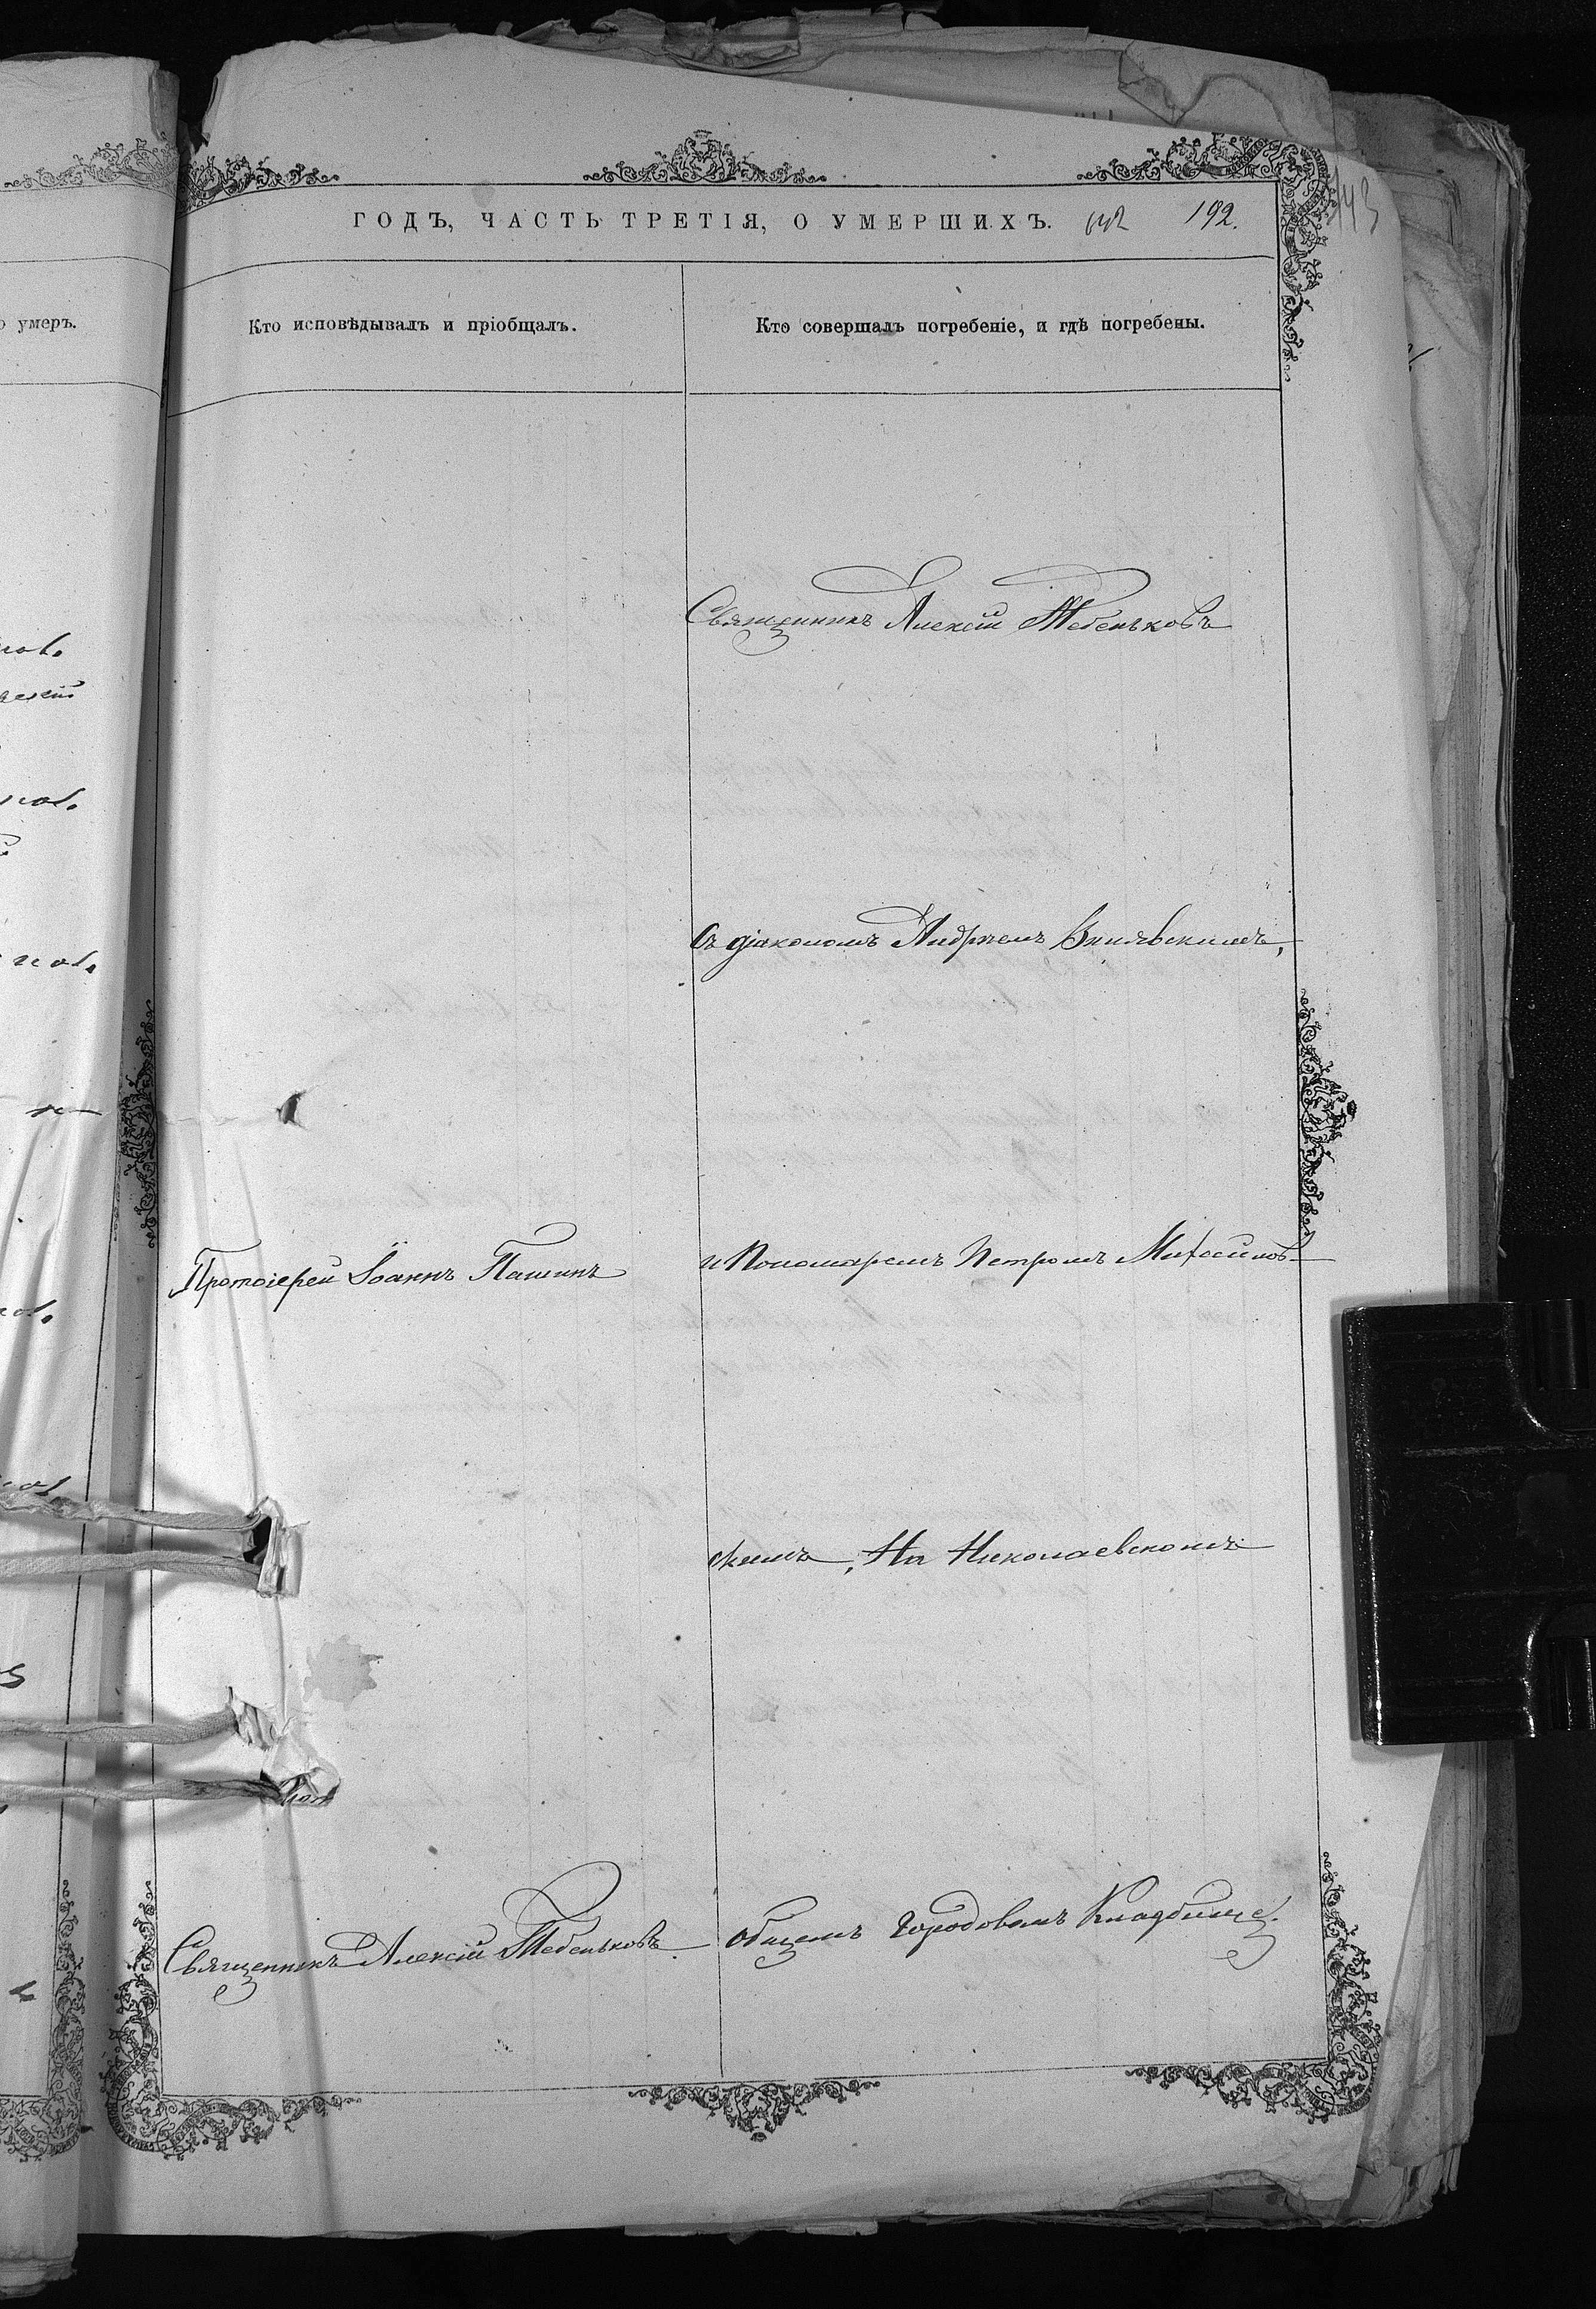 ГОДЪ, ЧАСТЬ ТРЕТІЯ, О УМЕРШИХЪ. 192.
умеръ.
Кто исповѣдывалъ и пріобщалъ.
Кто совершалъ погребеніе, и гдѣ погребены.
Священникъ Алексій Тебеньковъ
съ діакономъ Андреемъ
Протоіерей Іоаннъ Пашинъ
и Пономаремъ Петромъ
скимъ, На Николаевскомъ
Священникъ Алексій Тебеньковъ
общемъ городовомъ Кладбище.